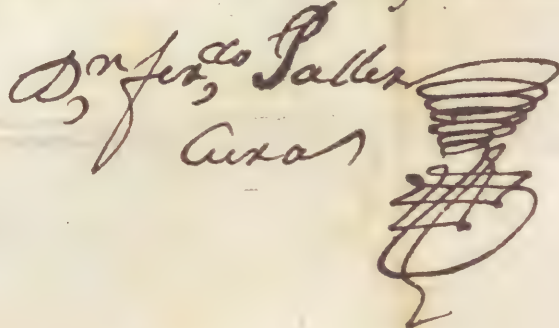 D,ⁿ fer,ᵈᵒ Paller
Cura